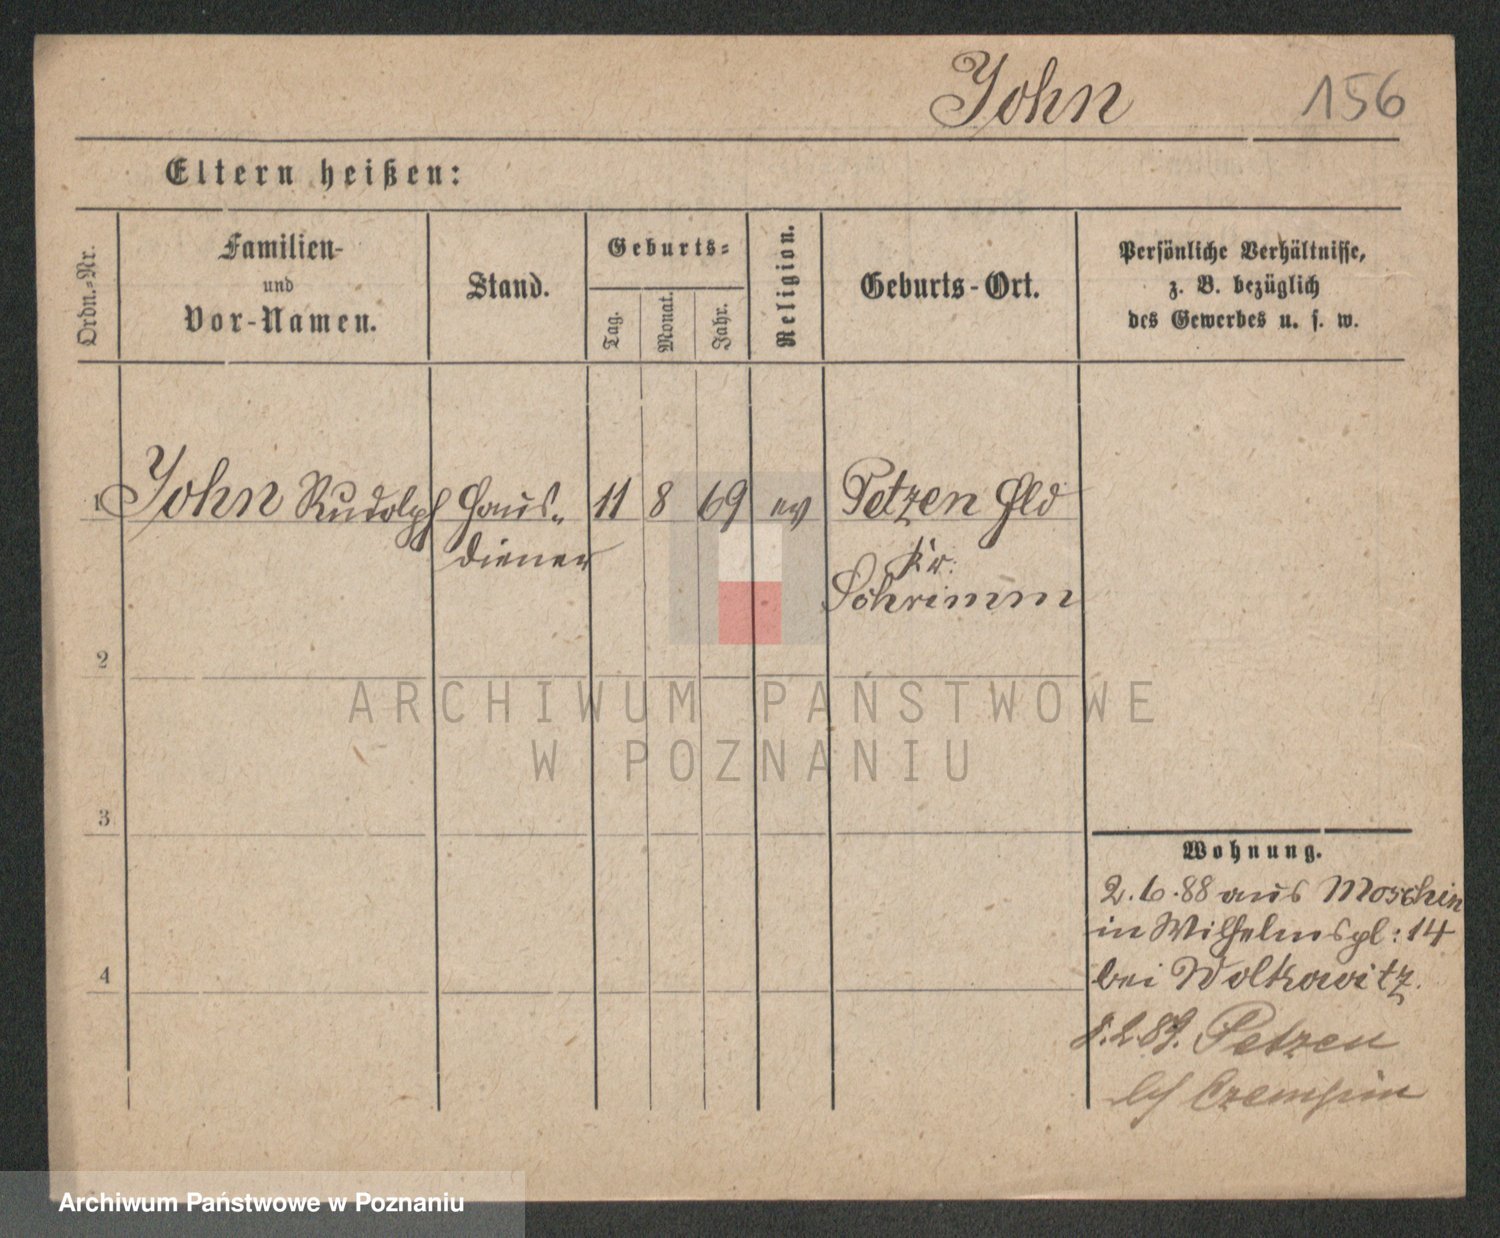 John 156
Eltern heißen:
Ordn.-Nr.
Familien-
und
Vor-Namen.
Stand.
Geburts-
Tag.
Monat.
Jahr.
Religion.
Geburts-Ort.
Persönliche Verhältnisse,
z. B. bezüglich
des Gewerbes u. s. w.
1 John Rudolph Haus- 11 8 69 ev Petzen Hld
diener Kr.
Schrimm
2
3
4
Wohnung.
2.6.88 aus Moschin
in Wilhelmspl: 14
bei Wolkowitz.
8.2.89. Petzen
b/ Czempin
ARCHIWUM PAŃSTWOWE
W POZNANIU
Archiwum Państwowe w Poznaniu